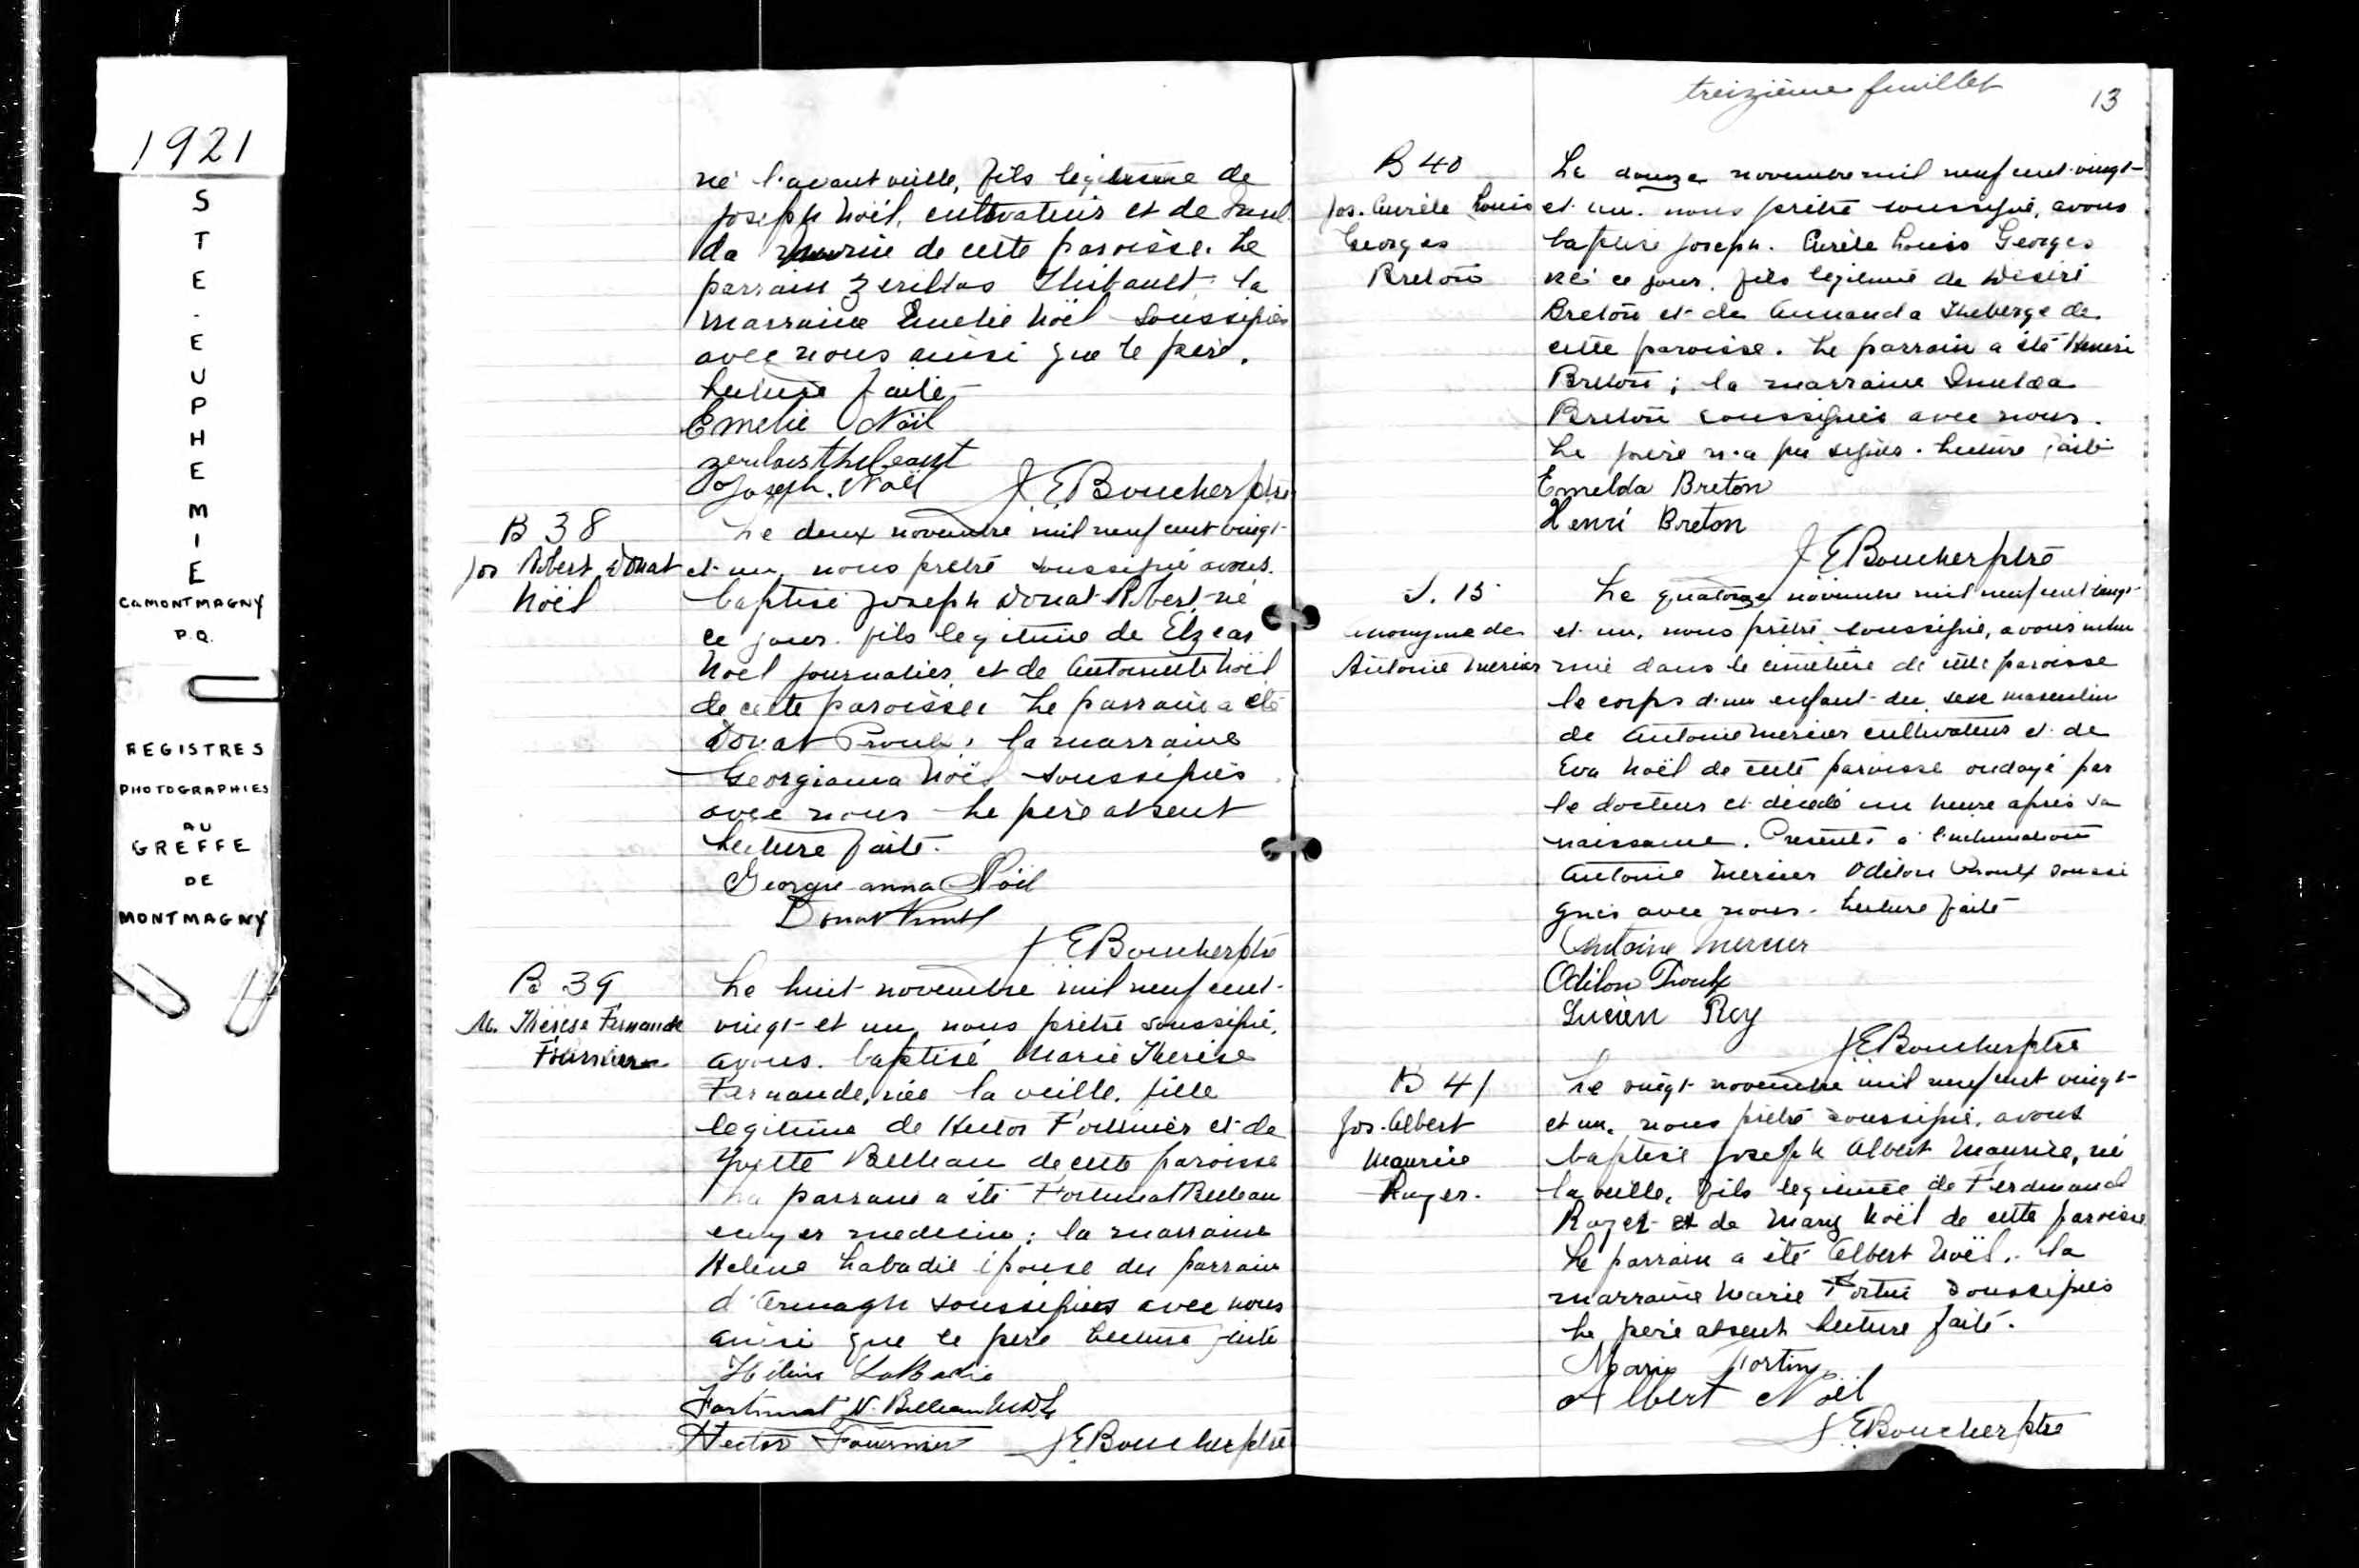 1921
STE.EUPHEMIE
CO MONTMAGNY
P.Q.
REGISTRES
PHOTOGRAPHIES
AU
GREFFE
DE
MONTMAGNY
né l'avant veille, fils legitime de
Joseph Noël, cultivateur et de
da de cette paroisse. Le
parrain Thibault; la
marraine Emelie Noël soussignés
avec nous ainsi que le père.
Lecture faite
Emelie Noël
Joseph. Noël J. E Boucher ptre
B 38
Jos Robert Donat
Noël
Le deux novembre mil neuf cent vingt-
et-un, nous prêtre soussigné avons.
baptisé Joseph Donat Robert né
ce jour. fils legitime de Elzear
Noël journalier et de Antoinette Noël
de cette paroisse. Le parrain a été
Donat Proulx, la marraine
Georgianna Noël soussignés
avec nous - Le père absent
Lecture faite.
Georgie-anna Noël
Donat
J E Boucher ptre
B 39
M. Thérèse Fernande
Fournier
Le huit novembre mil neuf cent-
vingt-et un, nous prêtre soussigné,
avons. baptisé Marie Therèse
Fernande, née la veille. fille
legitime de Hector Fournier et de
Yvette Belleau de cette paroisse
Le parrain a été Fortunat Belleau
medecin; la marraine
Helene Labadie épouse du parrain
d'Armagh soussignés avec nous
ainsi que le père Lecture faite
Hélène LaBadie
Fortunat N. Belleau
Hector Fournier J E Boucher ptre
treizième feuillet
13
B 40
Jos. Aurèle Louis
Georges
Breton
Le douze novembre mil neuf cent-vingt-
et-un. nous prêtre soussigné, avons
baptisé Joseph. Aurèle Louis Georges
né ce jour. fils legitime de Desiré
Breton et de Armanda Theberge de
cette paroisse. Le parrain a été Henri
Breton; la marraine Imelda
Breton soussignés avec nous.
Le père n'a pu signer. Lecture faite
Emelda Breton
Henri Breton
J E Boucher ptre
S. 15
anonyme de
Antoine Mercier
Le quatorze novembre mil neuf cent vingt-
et-un, nous prêtre soussigné, avons inhu
mé dans le cimetière de cette paroisse
le corps d'un enfant du sexe masculin
de Antoine Mercier cultivateur et de
Eva Noël de cette paroisse ondoyé par
le docteur et décedé une heure après sa
naissance. Presents à l'inhumation
Antoine Mercier Odilon Proulx soussi
gnés avec nous. Lecture faite
Antoine Mercier
Odilon Proulx
Lucien Roy
J E Boucher ptre
B 41
Jos. Albert
Maurice
Royer.
Le vingt novembre mil neuf cent vingt-
et un, nous prêtre soussigné, avons
baptisé Joseph Albert Maurice, né
la veille, fils legitime de Ferdinand
Royer et de Mary Noël de cette paroisse
Le parrain a été Albert Noël. La
marraine Marie Fortin soussignés
Le père absent Lecture faite.
Marie Fortin
Albert Noël
J E Boucher ptre